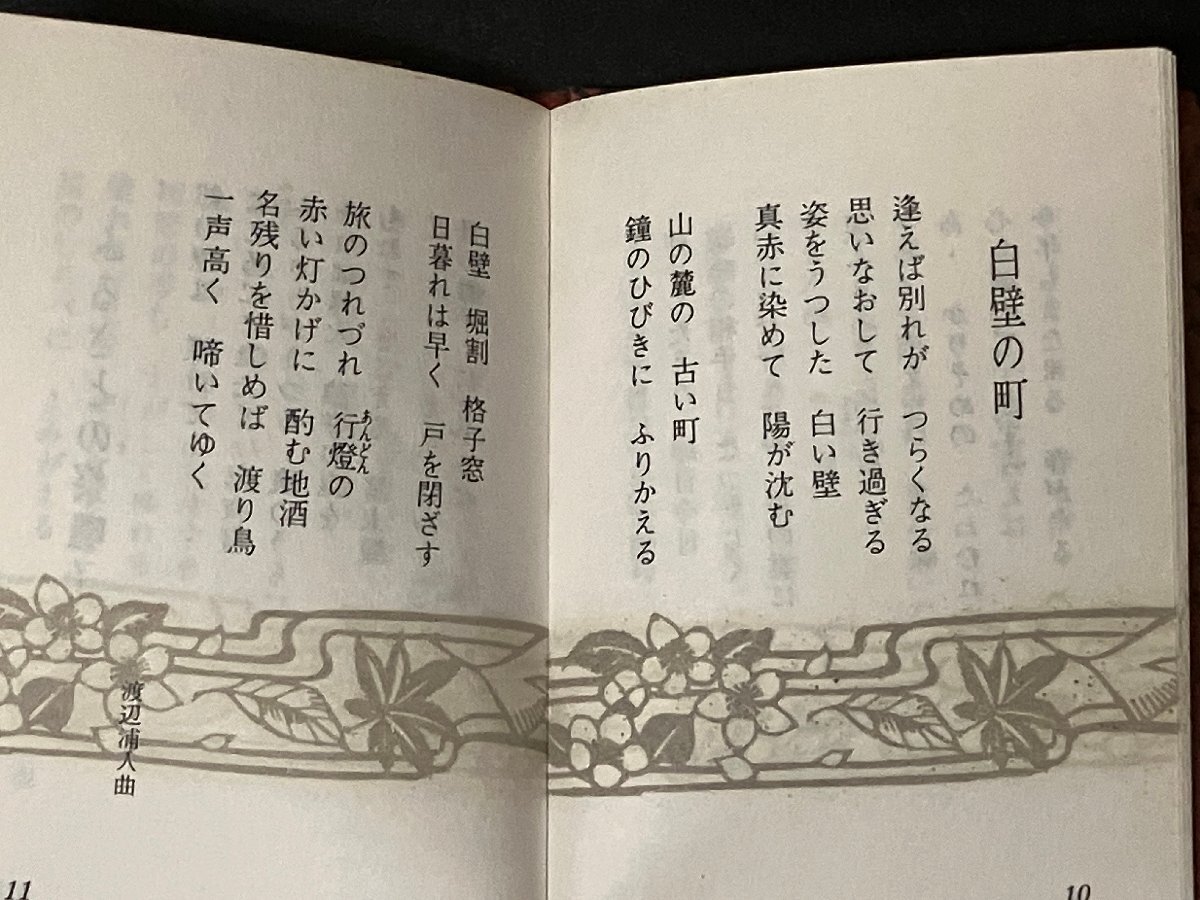 白壁の町
逢えば別れが つらくなる
思いなおして 行き過ぎる
姿をうつした 白い壁
真赤に染めて 陽が沈む
山の麓の 古い町
鐘のひびきに ふりかえる
10
白壁 堀割 格子窓
日暮れは早く 戸を閉ざす
旅のつれづれ 行燈の
あんどん
赤い灯かげに 酌む地酒
名残りを惜しめば 渡り鳥
一声高く 啼いてゆく
渡辺浦人曲
11